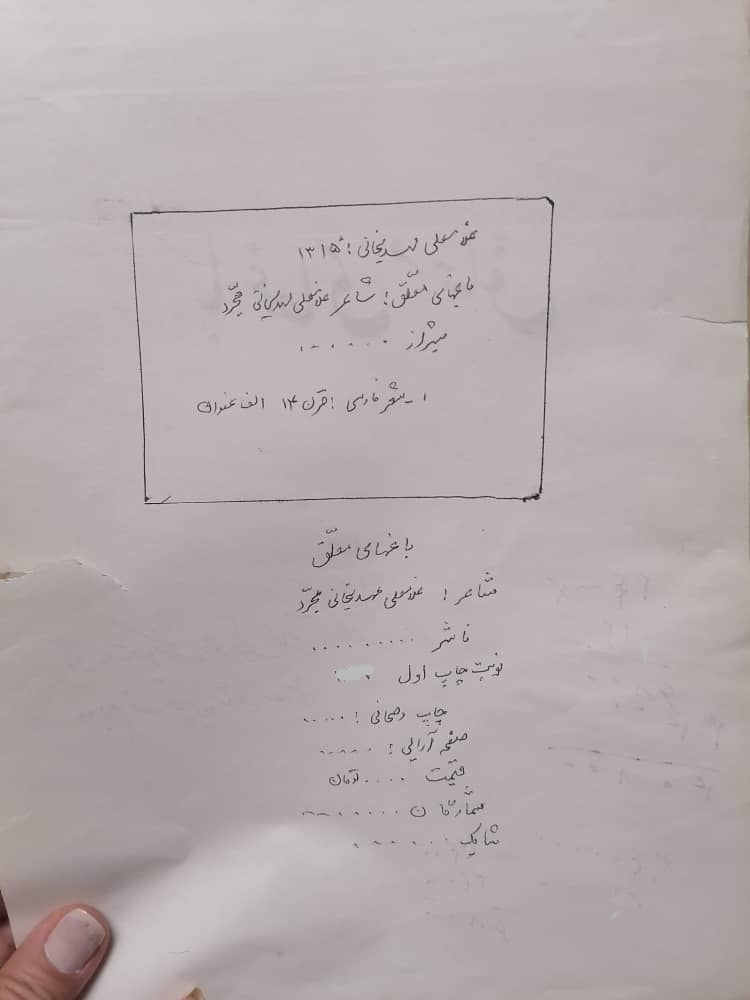 غلامعلی مهدیخانی؛ ۱۳۱۵
باغهای معلّق؛ شاعر غلامعلی مهدیخانی مجرّد
شیراز ......
۱ - شعر فارسی؛ قرن ۱۴ الف عنوان
باغهای معلّق
شاعر؛ غلامعلی مهدیخانی مجرّد
ناشر .........
نوبت چاپ اول
چاپ و صحافی؛ .....
صفحه آرایی؛ ......
قیمت .... تومان
شمارگان ........
شابک ......